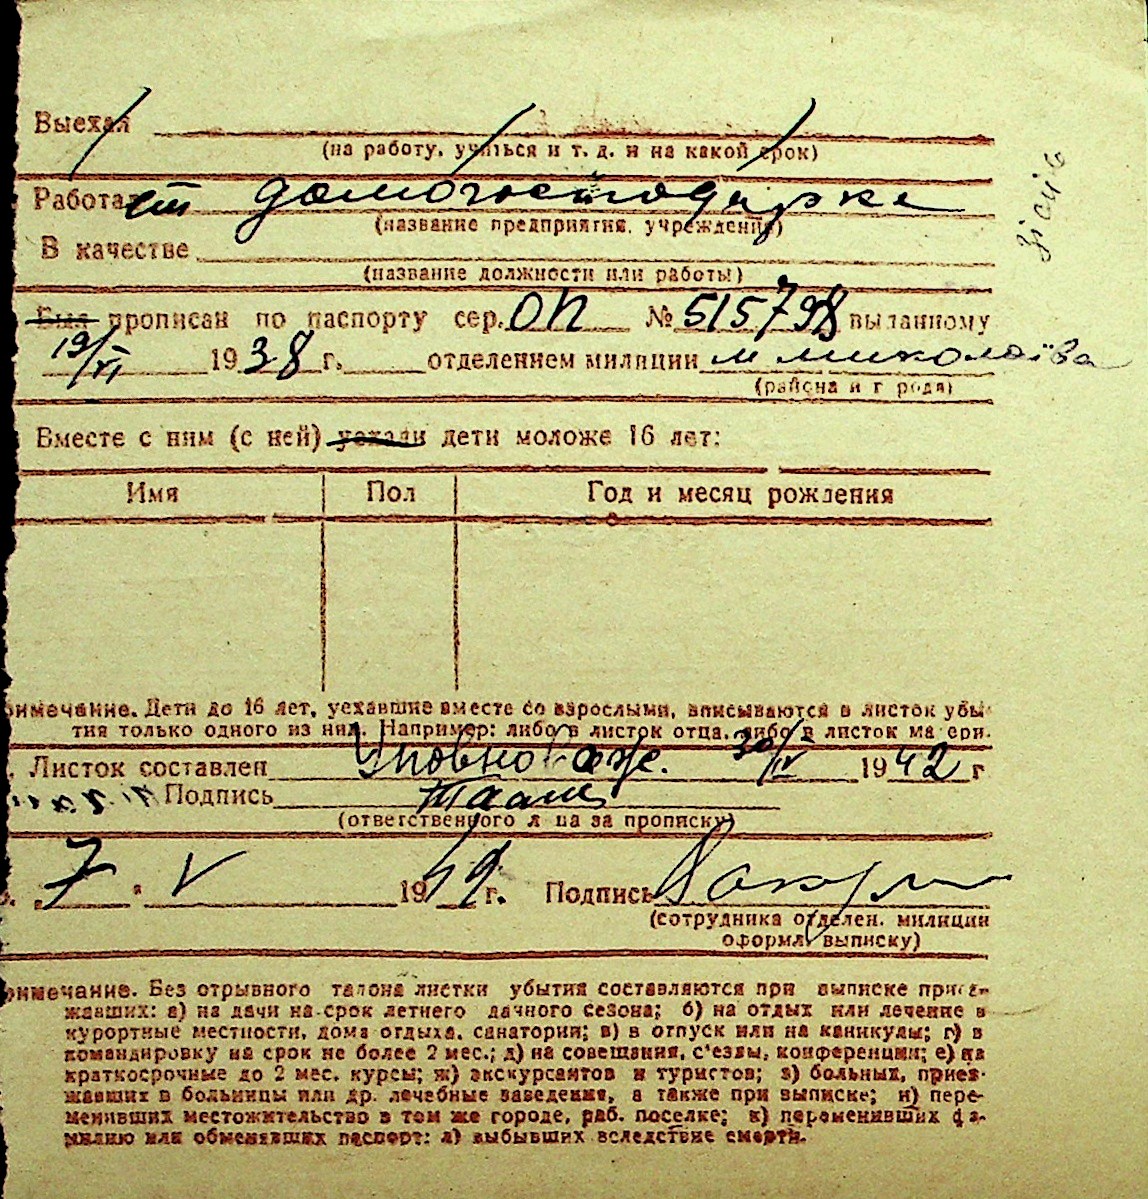 Выехал
(на работу, учиться и т. д. и на какой срок)
Работает домогосподарка
(название предприятия, учреждения)
В качестве
(название должности или работы)
Был прописан по паспорту сер. ОП № 515798 выданному
19/VI 1938 г. отделением милиции м Миколаїва
(района и города)
Вместе с ним (с ней) уехали дети моложе 16 лет:
Имя Пол Год и месяц рождения
римечание. Дети до 16 лет, уехавшие вместе со взрослыми, вписываются в листок убы-
тия только одного из них. Например: либо в листок отца, либо в листок матери.
Листок составлен Уповноваж. 30/IV 1942 г
Подпись
(ответственного лица за прописку)
7 " V 1942 г. Подпись
(сотрудника отделен. милиции
оформл. выписку)
римечание. Без отрывного талона листки убытия составляются при выписке приез-
жавших: а) на дачи на срок летнего дачного сезона; б) на отдых или лечение в
курортные местности, дома отдыха, санатории; в) в отпуск или на каникулы; г) в
командировку на срок не более 2 мес.; д) на совещания, с'езды, конференции; е) на
краткосрочные до 2 мес. курсы; ж) экскурсантов и туристов; з) больных, приез-
жавших в больницы или др. лечебные заведения, а также при выписке; и) пере-
менивших местожительство в том же городе, раб. поселке; к) переменивших фа-
милию или обменявших паспорт: л) выбывших вследствие смерти.